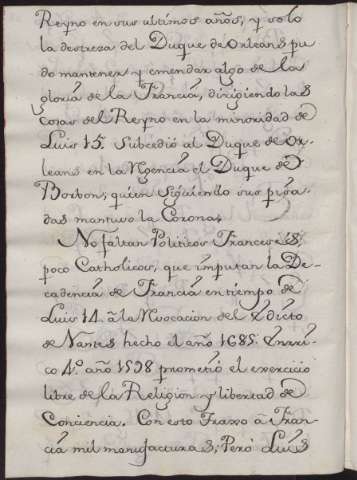 Reyno en sus ultimos años, y solo
la destreza del Duque de Orleans pu
do mantener y emendar algo de la
gloria de la Francia, dirigiendo las
cosas del Reyno en la minoridad de
Luis 15. Subcedió al Duque de Or-
leans en la Regencia el Duque de
Borbon, quien siguiendo sus pisa-
das mantuvo la Corona.
No faltan Politicos Franceses,
poco Catholicos, que imputan la De-
cadencia de Francia en tiempo de
Luis 14. â la Revocacion del Edicto
de Nantes hecho el año 1685. Enrri-
co 4.º año 1598 prometió el exercicio
libre de la Religion y libertad de
Conciencia. Con esto traxo â Fran-
cia mil manufacturas; Pero Luis